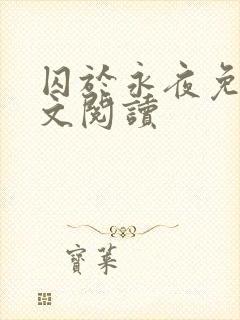 囚於永夜免
文閱讀
寶萊